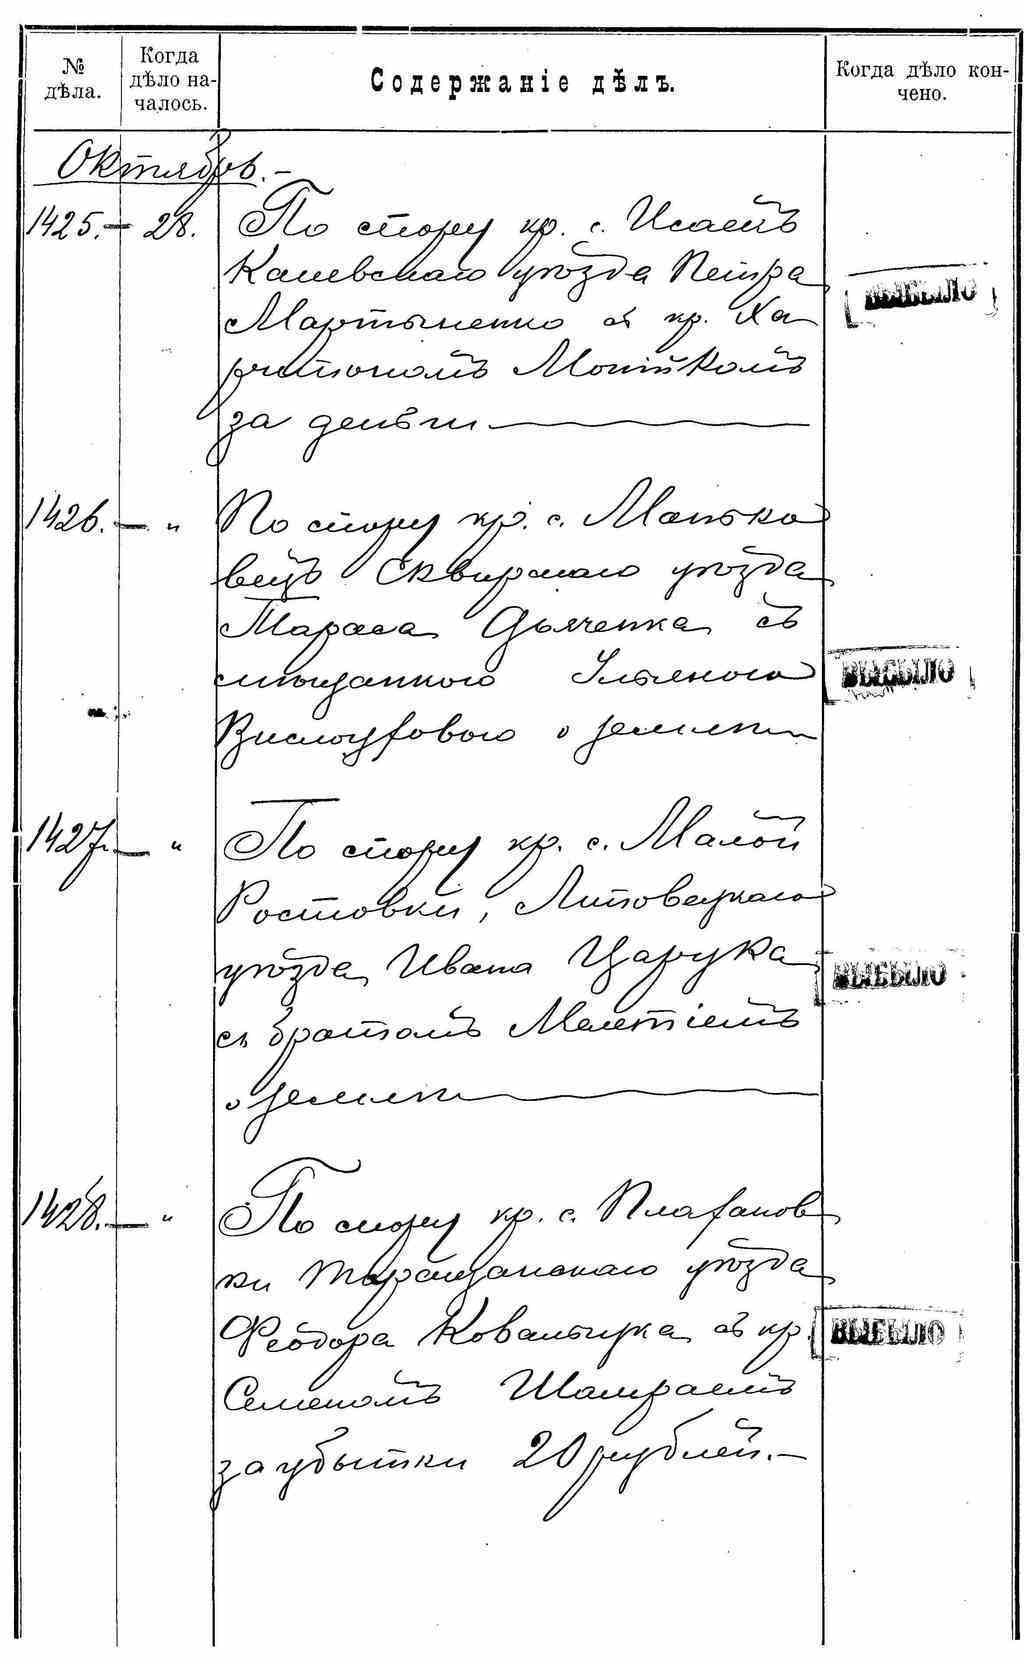 № дѣла.
Когда дѣло на-
чалось.
Содержаніе дѣлъ.
Когда дѣло кон-
чено.
Октябрь.-
1425.- 28. По спору кр. с. Исаекъ
Каневскаго уѣзда Петра
Мартыненко съ кр. Ха
ритономъ
за деньги
ВЫБЫЛО
1426. - " По спору кр. с. Манько
вецъ Сквирскаго уѣзда
Тараса Дьяченка съ
мѣщанкою Ульяною
Вислоуховою о землѣ
ВЫБЫЛО
1427. - " По спору кр. с. Малой
Ростовки, Липовецкаго
уѣзда, Ивана Царука
съ братомъ Мелетіемъ
о землѣ
ВЫБЫЛО
1428. - " По спору кр. с. Плахтанов
ки Таращанскаго уѣзда
Феодора Ковальчука съ кр.
Семеномъ Шамраемъ
за убытки 20 рублей.-
ВЫБЫЛО